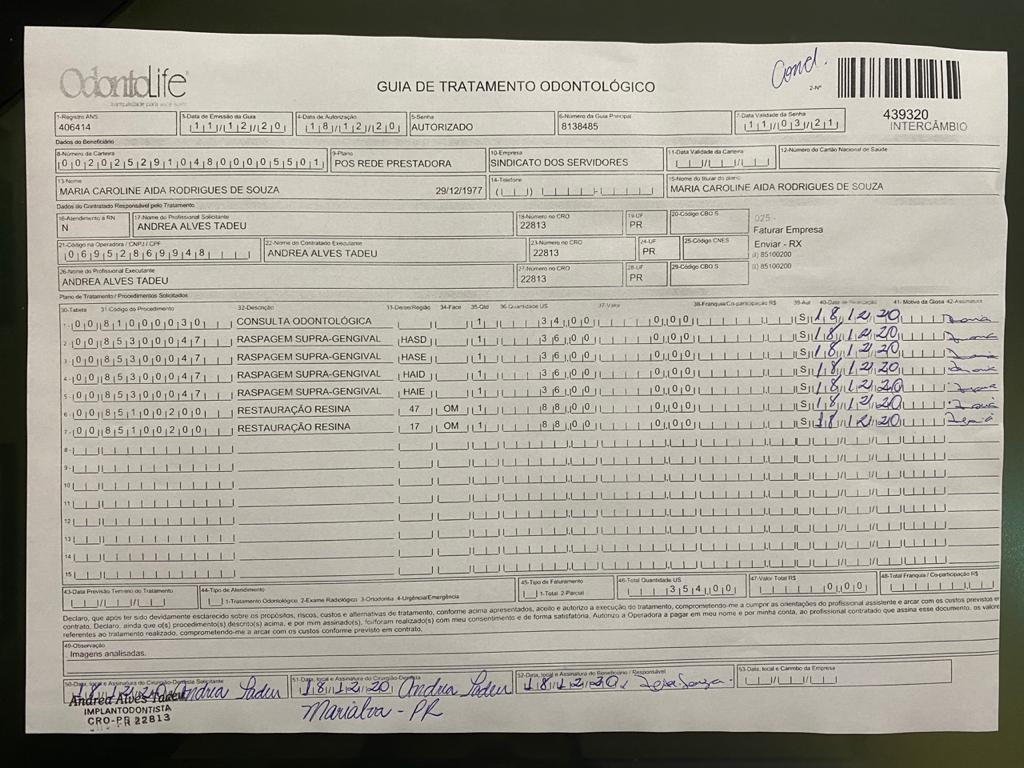 Cond.
OdontoLife
tranquilidade para você sorrir
GUIA DE TRATAMENTO ODONTOLÓGICO
2-Nº
439320
INTERCÂMBIO
1-Registro ANS 3-Data de Emissão da Guia 4-Data de Autorização 5-Senha 6-Número da Guia Principal 7-Data Validade da Senha
406414 11/12/20 18/12/20 AUTORIZADO 8138485 11/03/21
Dados do Beneficiário
8-Número da Carteira 9-Plano 10-Empresa 11-Data Validade da Carteira 12-Número do Cartão Nacional de Saúde
00202529104800005501 POS REDE PRESTADORA SINDICATO DOS SERVIDORES
13-Nome 14-Telefone 15-Nome do titular do plano
MARIA CAROLINE AIDA RODRIGUES DE SOUZA 29/12/1977 MARIA CAROLINE AIDA RODRIGUES DE SOUZA
Dados do Contratado Responsável pelo Tratamento
16-Atendimento a RN 17-Nome do Profissional Solicitante 18-Número no CRO 19-UF 20-Código CBO S
N ANDREA ALVES TADEU 22813 PR
025 -
Faturar Empresa
Enviar - RX
85100200
85100200
21-Código na Operadora / CNPJ / CPF 22-Nome do Contratado Executante 23-Número no CRO 24-UF 25-Código CNES
06952869948 ANDREA ALVES TADEU 22813 PR
26-Nome do Profissional Executante 27-Número no CRO 28-UF 29-Código CBO S
ANDREA ALVES TADEU 22813 PR
Plano de Tratamento / Procedimentos Solicitados
30-Tabela 31-Código do Procedimento 32-Descrição 33-Dente/Região 34-Face 35-Qtd 36-Quantidade US 37-Valor 38-Franquia/Co-participação R$ 39-Aut 40-Data de Realização 41- Motivo da Glosa 42-Assinatura
1- 00 81000030 CONSULTA ODONTOLÓGICA 1 34 00 0 00 S 18 12 20
2- 00 85300047 RASPAGEM SUPRA-GENGIVAL HASD 1 36 00 0 00 S 18 12 20
3- 00 85300047 RASPAGEM SUPRA-GENGIVAL HASE 1 36 00 0 00 S 18 12 20
4- 00 85300047 RASPAGEM SUPRA-GENGIVAL HAID 1 36 00 0 00 S 18 12 20
5- 00 85300047 RASPAGEM SUPRA-GENGIVAL HAIE 1 36 00 0 00 S 18 12 20
6- 00 85100200 RESTAURAÇÃO RESINA 47 OM 1 88 00 0 00 S 18 12 20
7- 00 85100200 RESTAURAÇÃO RESINA 17 OM 1 88 00 0 00 S 18 12 20
8-
9-
10
11
12
13
14
15
43-Data Previsão Término do Tratamento 44-Tipo de Atendimento 45-Tipo de Faturamento 46-Total Quantidade US 47-Valor Total R$ 48-Total Franquia / Co-participação R$
1-Tratamento Odontológico 2-Exame Radiológico 3-Ortodontia 4-Urgência/Emergência 1-Total 2-Parcial 354 00 0 00
Declaro, que após ter sido devidamente esclarecido sobre os propósitos, riscos, custos e alternativas de tratamento, conforme acima apresentados, aceito e autorizo a execução do tratamento, comprometendo-me a cumprir as orientações do profissional assistente e arcar com os custos previstos em
contrato. Declaro, ainda que o(s) procedimento(s) descrito(s) acima, e por mim assinado(s), foi/foram realizado(s) com meu consentimento e de forma satisfatória. Autorizo a Operadora a pagar em meu nome e por minha conta, ao profissional contratado que assina esse documento, os valores
referentes ao tratamento realizado, comprometendo-me a arcar com os custos conforme previsto em contrato.
49-Observação
Imagens analisadas.
50-Data, local e Assinatura do Cirurgião-Dentista Solicitante 51-Data, local e Assinatura do Cirurgião-Dentista 52-Data, local e Assinatura do Beneficiário / Responsável 53-Data, local e Carimbo da Empresa
18 12 20 Andrea Tadeu 18 12 20 Andrea Tadeu 18 12 20
Andrea Alves Tadeu
IMPLANTODONTISTA
CRO-PR 22813
Marialva - PR